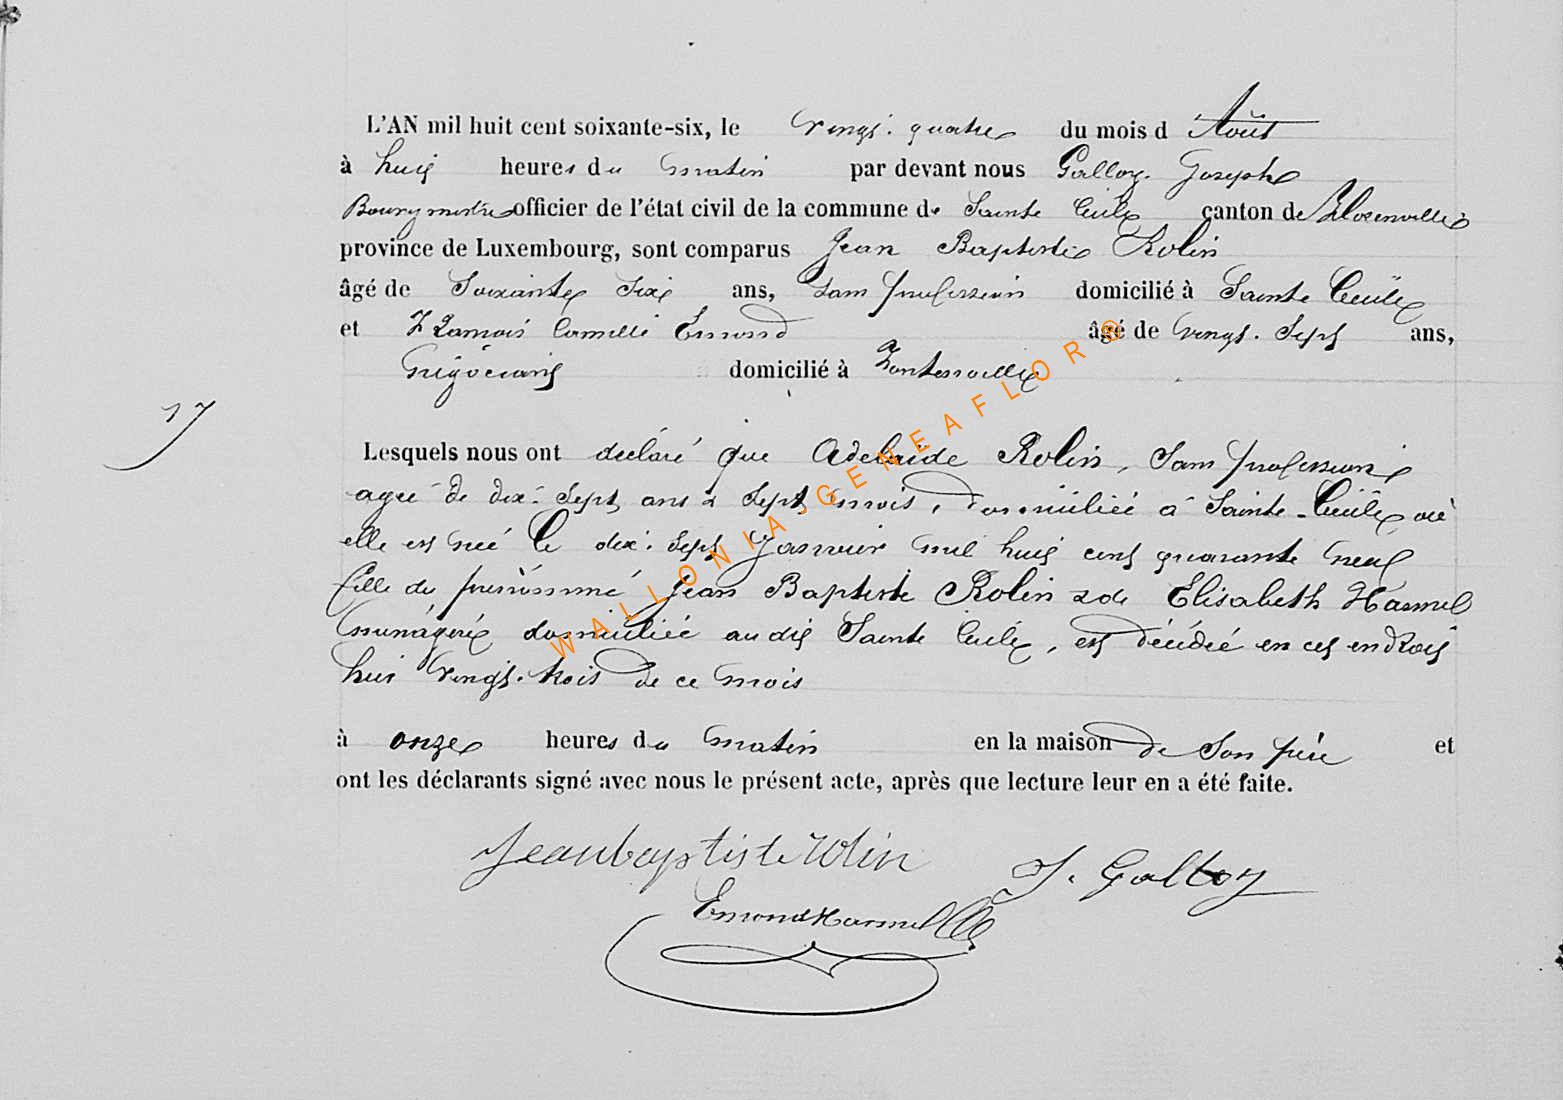 L'AN mil huit cent soixante-six, le vingt quatre du mois d Août
à huit heures du matin par devant nous Galloy Joseph
Bourgmestre officier de l'état civil de la commune de Sainte Cécile canton de
province de Luxembourg, sont comparus Jean Baptiste Rolin
âgé de Soixante Six ans, Sans profession domicilié à Sainte Cécile
et Camille Emond âgé de vingt-Sept ans,
Négociant domicilié à
17
Lesquels nous ont déclaré que Adelaïde Rolin, Sans profession
agée de dix-Sept ans & Sept mois, domiciliée à Sainte-Cécile où
elle est née le dix-Sept Janvier mil huit cent quarante neuf
fille du prénommé Jean Baptiste Rolin & de Elisabeth Hasmel
ménagère domiciliée audit Sainte Cécile, est décédée en cet endroit
hier vingt-trois de ce mois
à onze heures du matin en la maison de Son père et
ont les déclarants signé avec nous le présent acte, après que lecture leur en a été faite.
Jeanbaptiste rolin
J. Galloy
Emond
WALLONIA-GENEAFLOR®